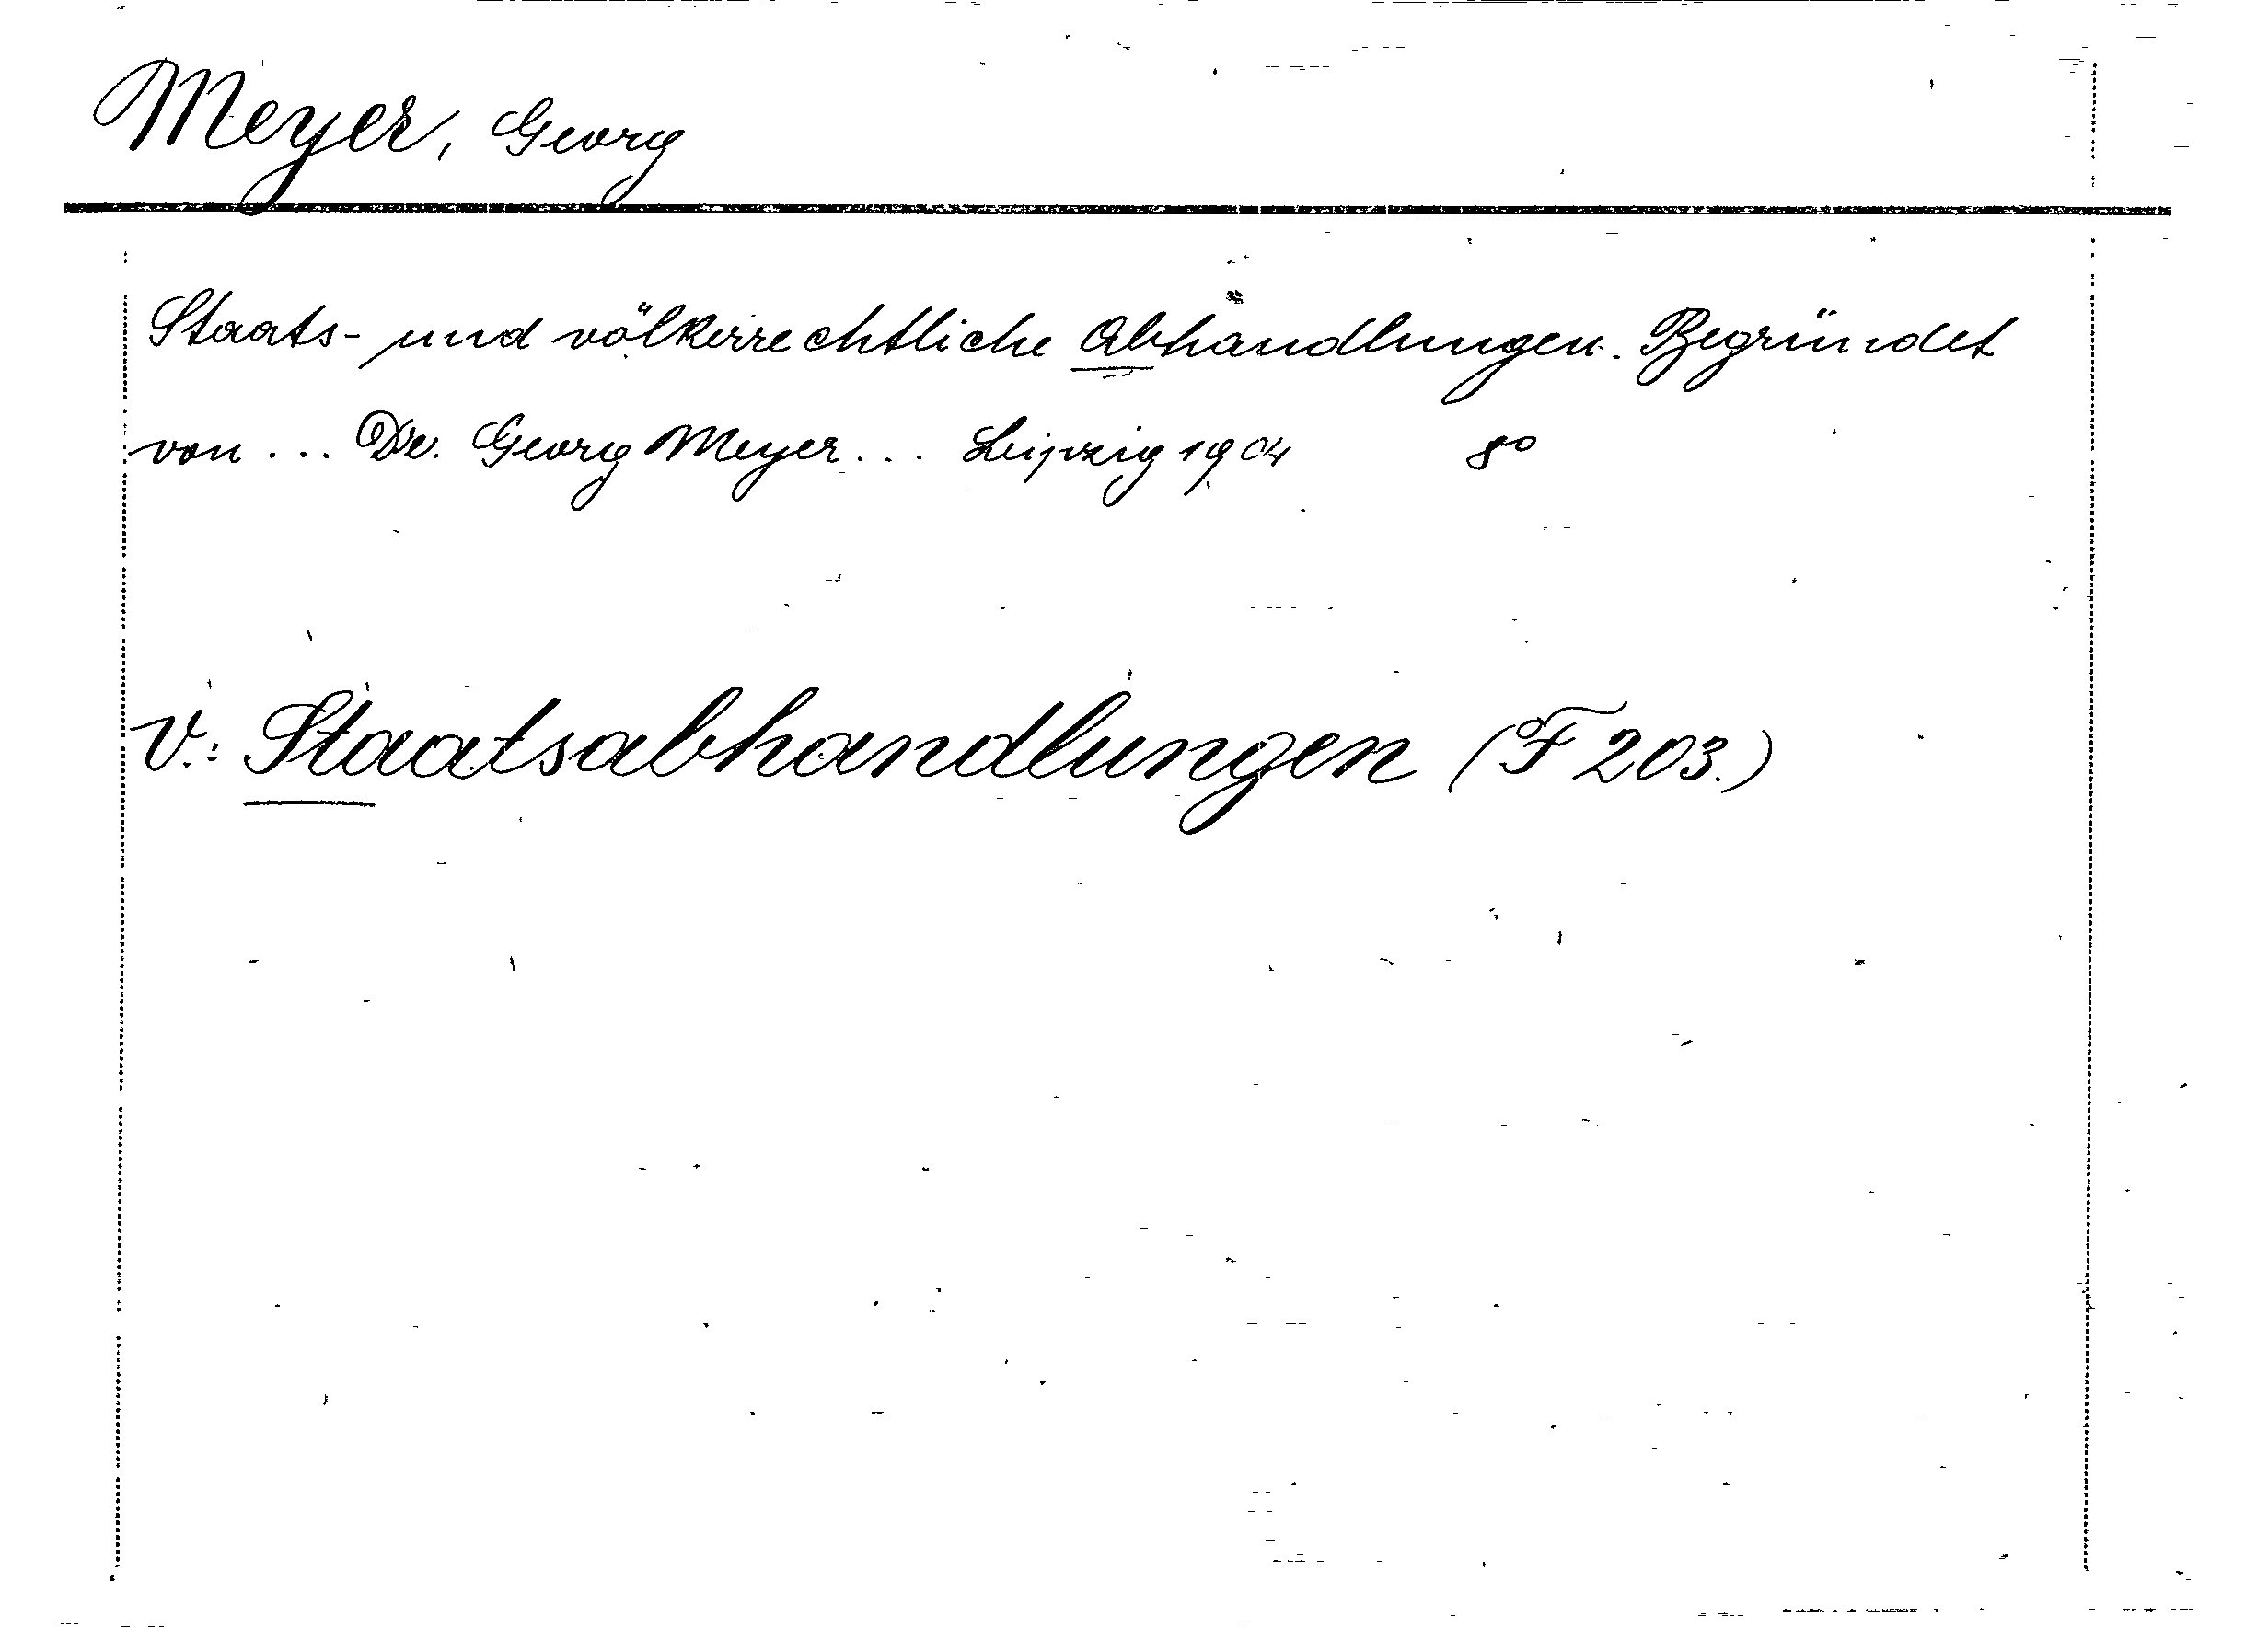 Meyer, Georg
Staats- und völkerrechtliche Abhandlungen. Begründet
von ... Dr. Georg Meyer ... Leipzig 1904 8°
v.: Staatsabhandlungen (F 203.)